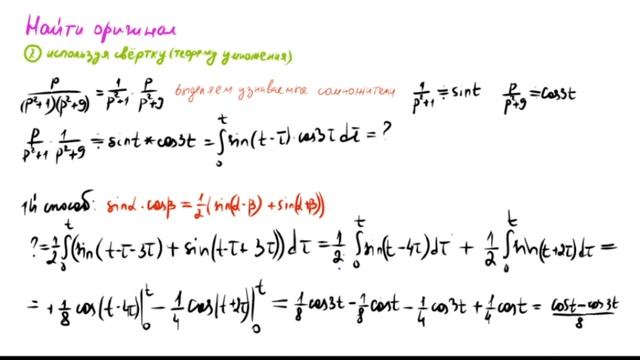 Найти оригинал
② используя свёртку (теорему умножения)
p/((p²+1)(p²+9)) = 1/(p²+1) · p/(p²+9) выделяем узнаваемые сомножители 1/(p²+1) ≑ sint p/(p²+9) ≑ cos3t
p/(p²+1) · 1/(p²+9) ≑ sint * cos3t = ∫₀ᵗ sin(t-τ) · cos3τ dτ = ?
1й способ: sinα · cosβ = 1/2 (sin(α-β) + sin(α+β))
? = 1/2 ∫₀ᵗ (sin(t-τ-3τ) + sin(t-τ+3τ)) dτ = 1/2 ∫₀ᵗ sin(t-4τ)dτ + 1/2 ∫₀ᵗ sin(t+2τ)dτ =
= +1/8 cos(t-4τ)|₀ᵗ - 1/4 cos(t+2τ)|₀ᵗ = 1/8 cos3t - 1/8 cost - 1/4 cos3t + 1/4 cost = (cost-cos3t)/8